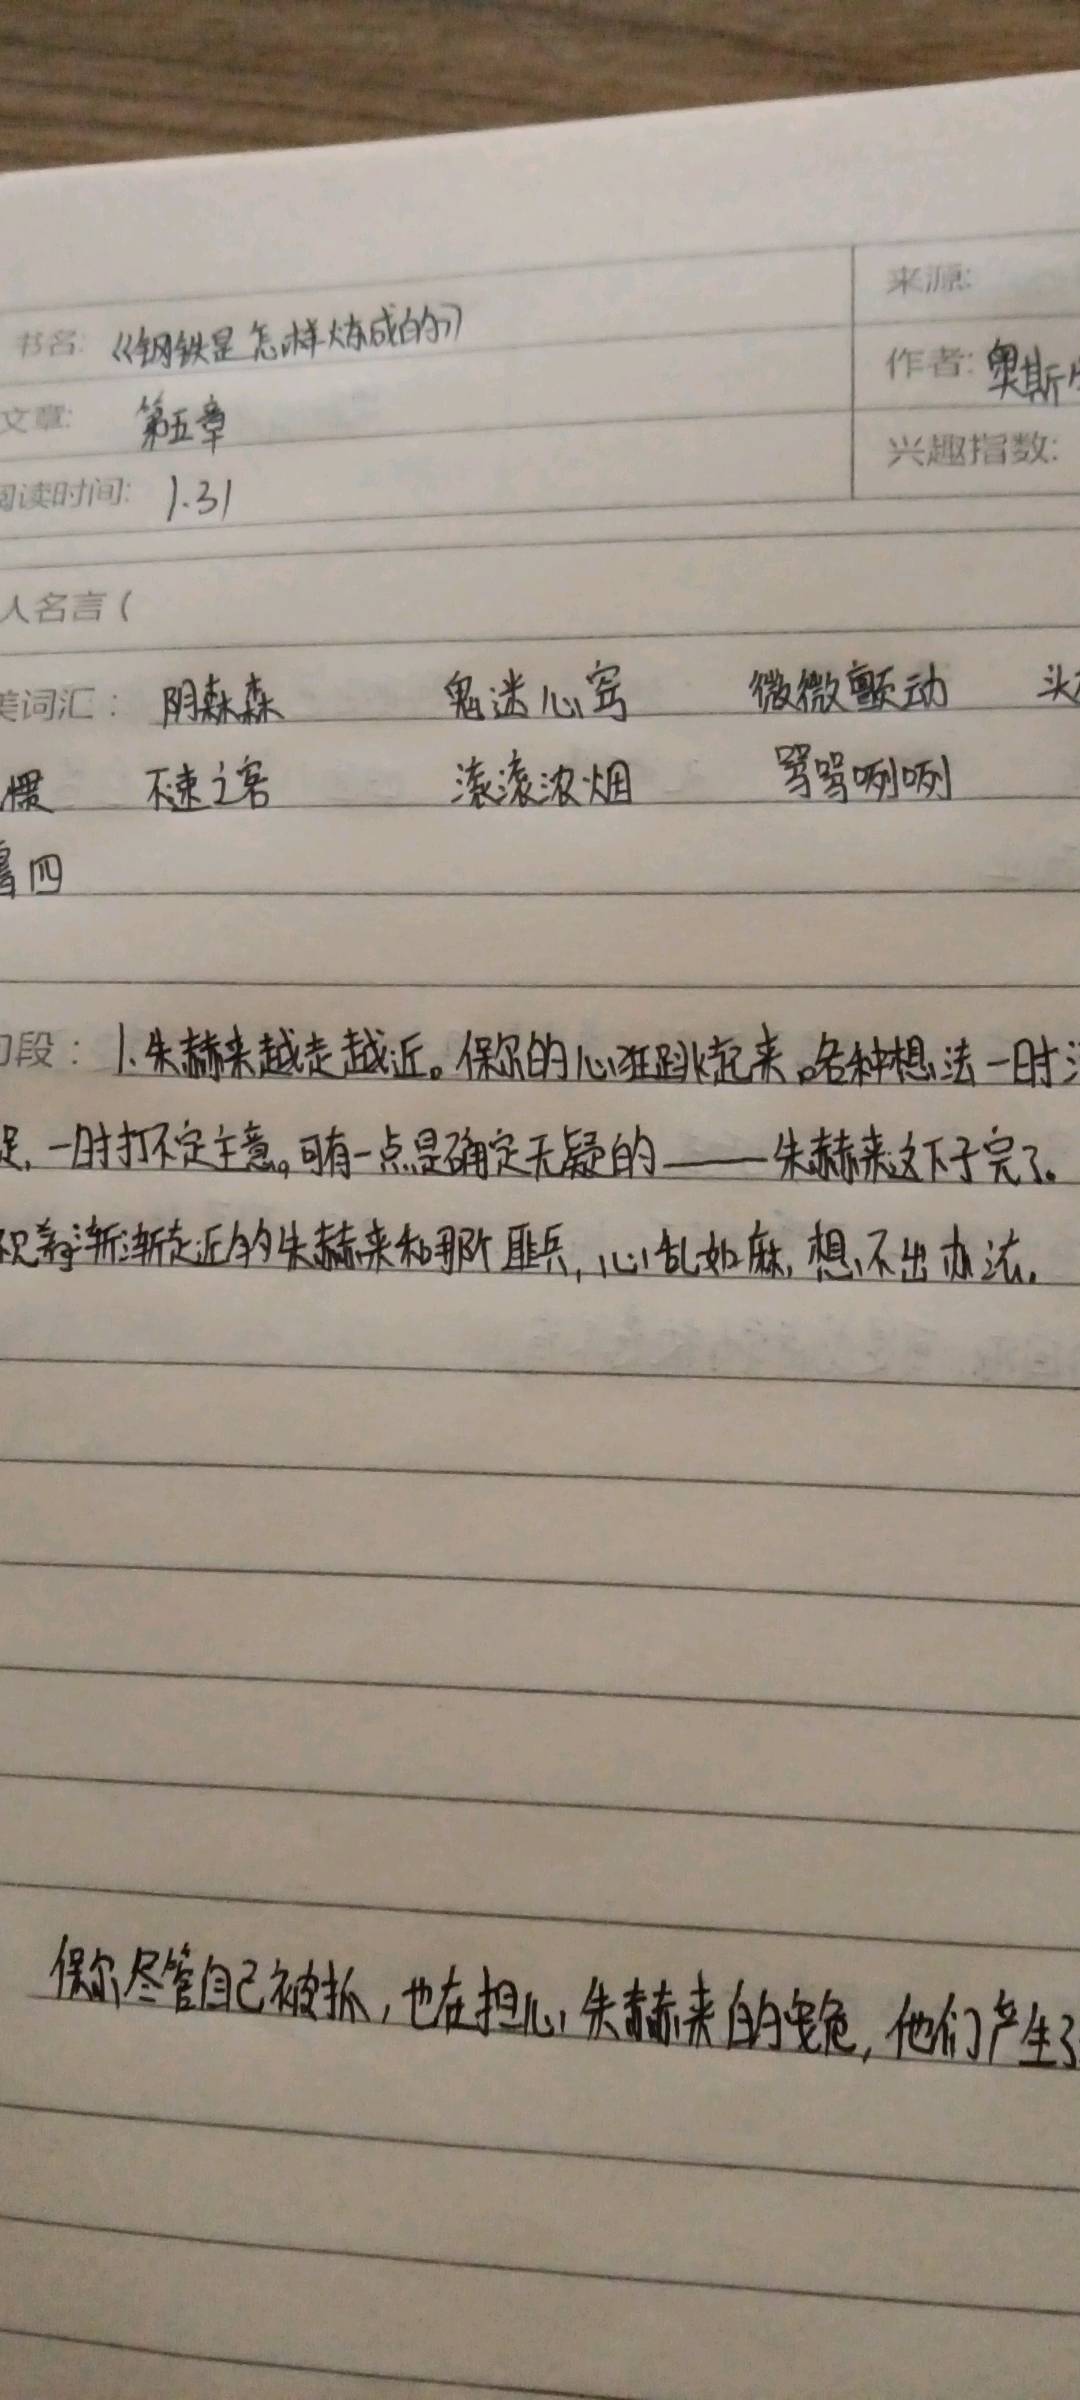 来源:
书名: 《钢铁是怎样炼成的》
作者: 奥斯
文章: 第五章
兴趣指数:
阅读时间: 1.31
人名言(
美词汇: 阴森森 鬼迷心窍 微微颤动 头
惯 不速之客 滚滚浓烟 骂骂咧咧
四
段: 1.朱赫来越走越近。保尔的心狂跳起来。各种想法一时
一时打不定主意。可有一点是确定无疑的——朱赫来这下子完了。
着渐渐走近的朱赫来和那个匪兵,心乱如麻,想不出办法,
保尔尽管自己被抓,也在担心朱赫来的安危,他们产生了